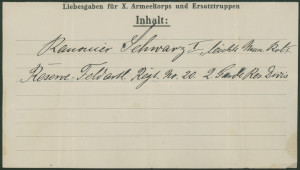 Liebesgaben für X. Armeekorps und Ersatztruppen
Inhalt:
Kanonier Schwarz I, leichte Mun. Kol.
Reserve-Feldartl. Regt. No. 20. 2 Garde Res. Divis